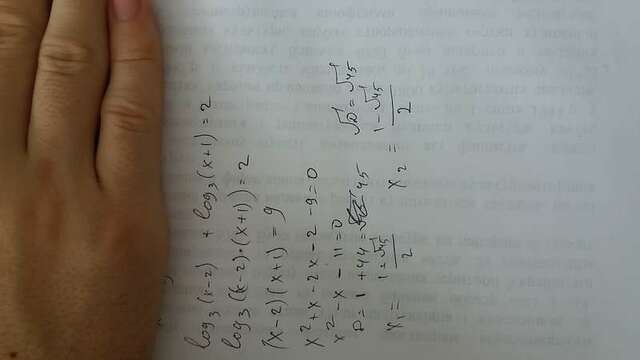 log₃(x-2) + log₃(x+1) = 2
log₃((x-2)·(x+1)) = 2
(x-2)(x+1) = 9
x²+x-2x-2-9=0
x²-x-11=0
D = 1 + 44 = 45 √D = √45
x₁ = (1+√45)/2 x₂ = (1-√45)/2